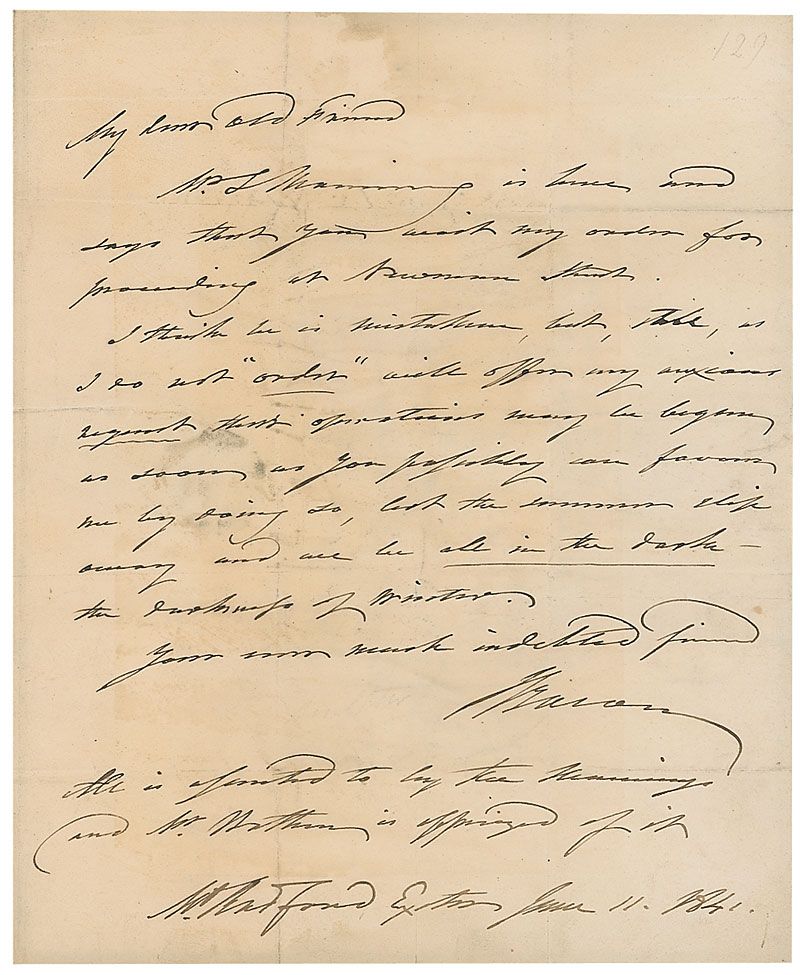 129
My dear Old Friend
Mr. S Manning is here and
says that you wait my order for
proceeding at Newman Street.
I think he is mistaken, but, still, as
I do not "order" will offer my anxious
request that operations may be begun
as soon as you possibly can favour
me by doing so, lest the summer slip
away and we be all in the dark —
the darkness of Winter.
Your ever much indebted friend
J Bacon
All is assented to by the Mannings
and Mr. is apprized of it
Mt Radford Exeter June 11. 1841.